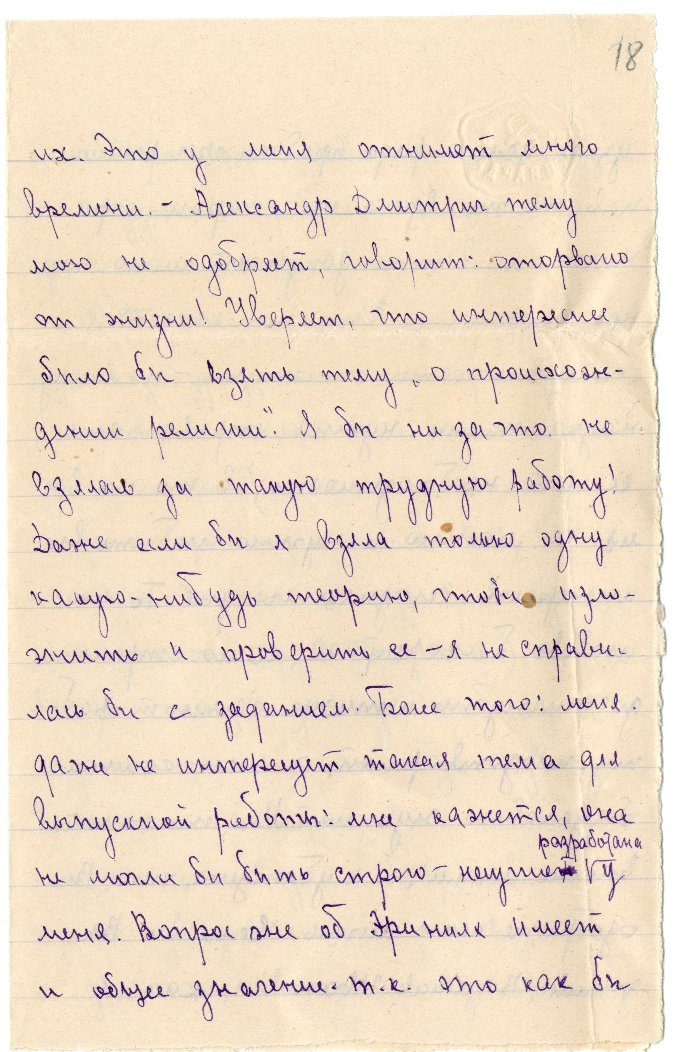 18
их Это у меня отнимет много
времени. – Александр Дмитрич тему
мою не одобряет, говорит: оторвано
от жизни! Уверяет, что интереснее
было бы взять тему „о происхож-
дении религии". Я бы ни за что не
взялась за такую трудную работу!
Даже если бы я взяла только одну
какую-нибудь теорию, чтобы изло-
жить и проверить ее – я не справи-
лась бы с заданием. Более того: меня
даже не интересует такая тема для
выпускной работы: мне кажется, она
разработана
не могла бы быть строго-научно у
меня. Вопрос же об Эриниях имеет
и общее значение. т.к. это как бы